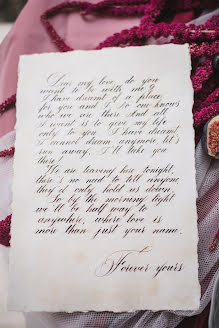 Love my love, do you
want to be with me?
I have dreamt of a place
for you and I. So one knows
who we are there and all
I want is to give my life
only to you. I have dreamt
I cannot dream anymore, let's
run away, I'll take you
there.
We are leaving here tonight,
there's no need to tell anyone
they'd only hold us down.
So by the morning light
we'll be half way to
anywhere, where love is
more than just your name.
Forever yours